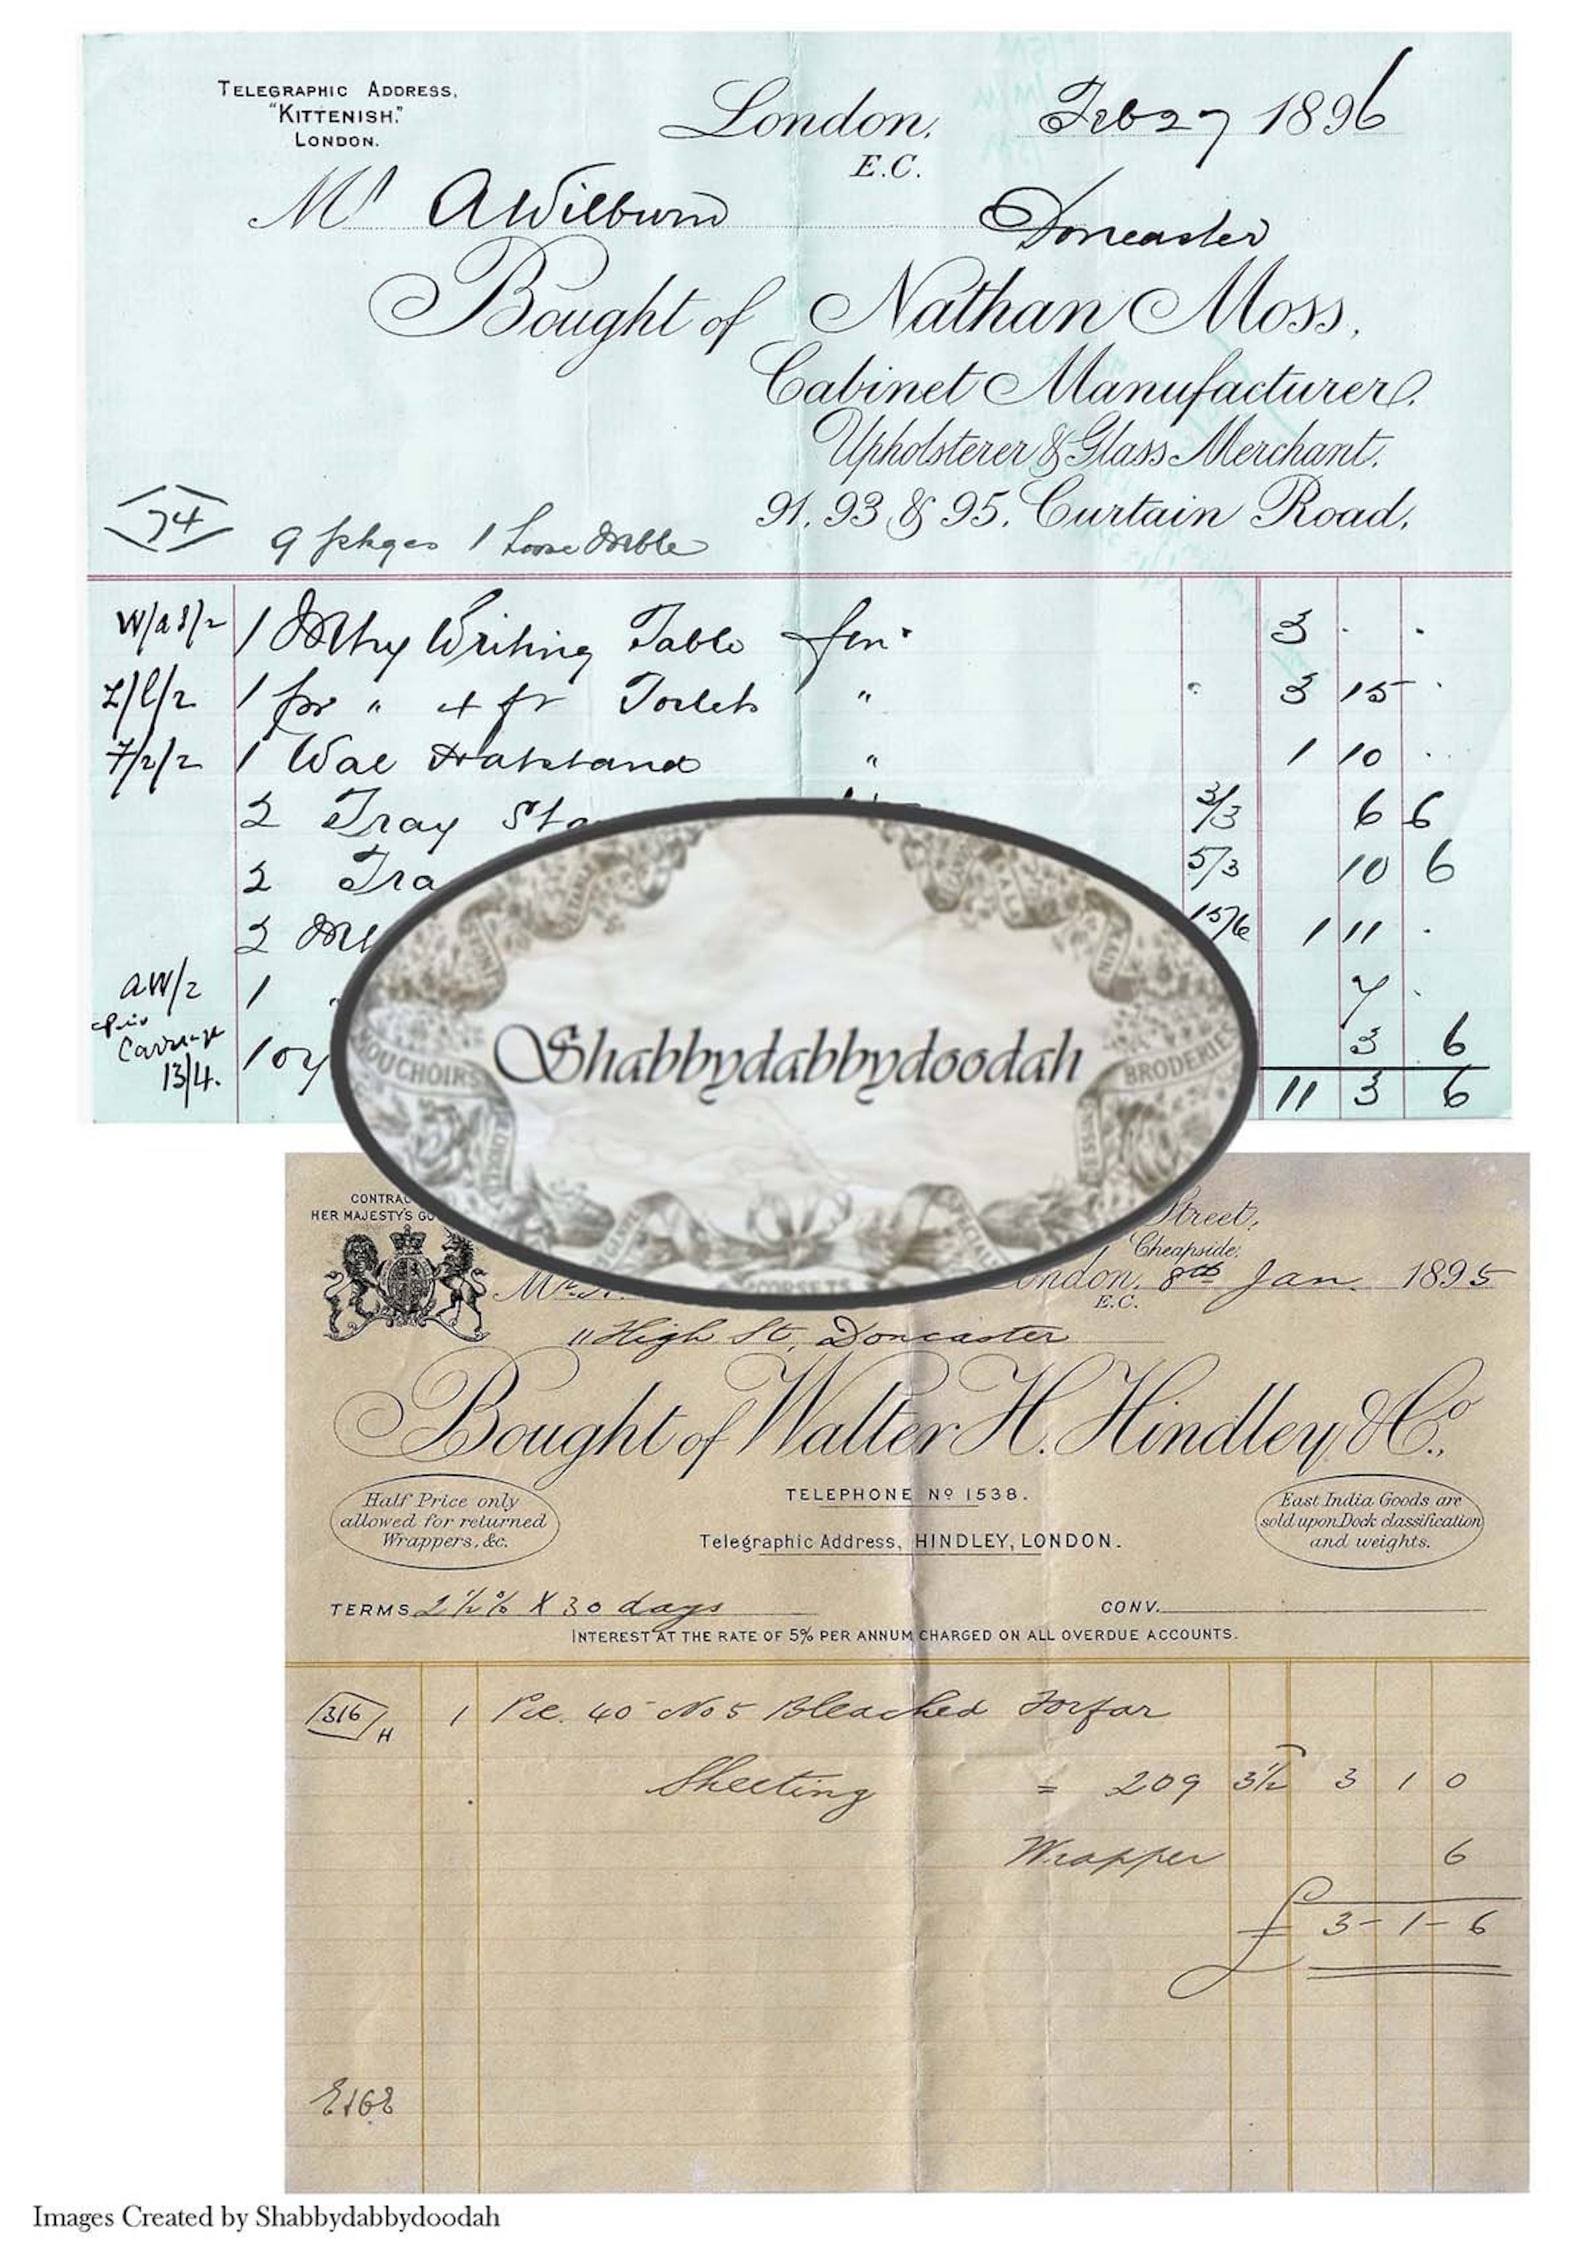 TELEGRAPHIC ADDRESS,
"KITTENISH."
LONDON.
London, Feb 27 1896
E.C.
Mr A Wilburn
Doncaster
Bought of Nathan Moss,
Cabinet Manufacturer,
Upholsterer & Glass Merchant,
91, 93 & 95, Curtain Road,
74
9 pkges 1 Loose
1 Writing Table 3 . .
1 pr " Toilets " 3 15 .
1 Wal Hatstand " 1 10 ..
2 Tray 3/3 6 6
2 5/3 10 6
2 15/6 1 11 .
AW/2 1 7 .
Carriage 3 6
13/4. 11 3 6
Shabbydabbydoodah
MOUCHOIRS
BRODERIES
CORSETS
HER MAJESTY'S
Street,
Cheapside,
London, 8th Jan. 1895
E.C.
11 High St, Doncaster
Bought of Walter H. Hindley, & Co.,
TELEPHONE No 1538.
Half Price only
allowed for returned
Wrappers, &c.
East India Goods are
sold upon Dock classification
and weights.
Telegraphic Address, HINDLEY, LONDON.
TERMS 2 1/2 % X 30 days
CONV.
INTEREST AT THE RATE OF 5% PER ANNUM CHARGED ON ALL OVERDUE ACCOUNTS.
316 H 1 Pce. 40 No 5 Bleached Forfar
Sheeting = 209 3 1/2 3 1 0
Wrapper 6
£ 3-1-6
Images Created by Shabbydabbydoodah